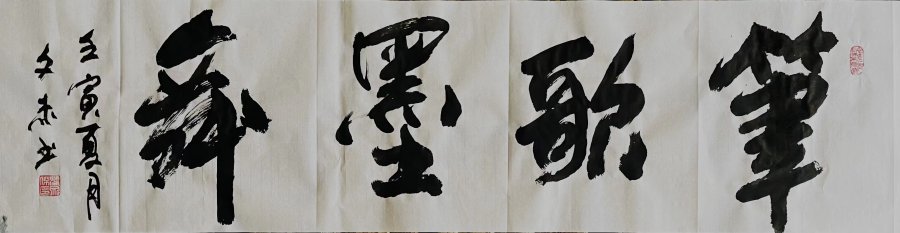 筆歌墨舞
壬寅夏月
文未书